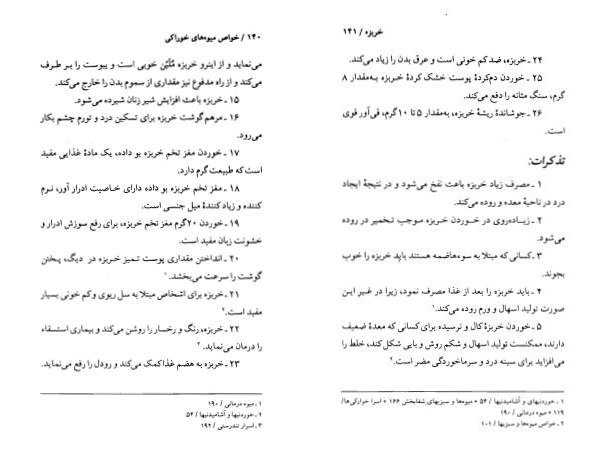 ۱۴۰ / خواص میوه‌های خوراکی
می‌نماید و از اینرو خربزه مُلَیّن خوبی است و یبوست را بر طرف
می‌کند و از راه مدفوع نیز مقداری از سموم بدن را خارج می‌کند.
۱۵ ـ خربزه باعث افزایش شیر زنان شیرده می‌شود.
۱۶ ـ مرهم گوشت خربزه برای تسکین درد و تورم چشم بکار
می‌رود.
۱۷ ـ خوردن مغز تخم خربزه بو داده، یک مادهٔ غذایی مفید
است که طبیعت گرم دارد.
۱۸ ـ مغز تخم خربزه بو داده دارای خاصیت ادرار آور، نرم
کننده و زیاد کنندهٔ میل جنسی است.
۱۹ ـ خوردن ۲۰گرم مغز تخم خربزه، برای رفع سوزش ادرار و
خشونت زبان مفید است.
۲۰ ـ انداختن مقداری پوست تمیز خربزه در دیگ، پختن
گوشت را سرعت می‌بخشد. ۱
۲۱ ـ خربزه برای اشخاص مبتلا به سل ریوی وکم خونی بسیار
مفید است. ۲
۲۲ ـ خربزه، رنگ و رخسار را روشن می‌کند و بیماری استسقاء
را درمان می‌نماید. ۳
۲۳ ـ خربزه به هضم غذاکمک می‌کند و رودل را رفع می‌نماید.
۱ ـ میوه درمانی / ۱۹۰
۲ ـ خوردنیها و آشامیدنیها / ۵۴
۳ ـ اسرار تندرستی / ۱۹۲
خربزه / ۱۴۱
۲۴ ـ خربزه، ضد کم خونی است و عرق بدن را زیاد می‌کند.
۲۵ ـ خوردن دم‌کردهٔ پوست خشک کردهٔ خربزه به‌مقدار ۸
گرم، سنگ مثانه را دفع می‌کند.
۲۶ ـ جوشاندهٔ ریشهٔ خربزه، به‌مقدار ۵ تا ۱۰گرم، قی‌آور قوی
است.
تذکرات:
۱ ـ مصرف زیاد خربزه باعث نفخ می‌شود و در نتیجهٔ ایجاد
درد در ناحیهٔ معده و روده می‌کند.
۲ ـ زیاده‌روی در خوردن خربزه موجب تخمیر در روده
می‌شود.
۳ ـ کسانی که مبتلا به سوءهاضمه هستند باید خربزه را خوب
بجوند.
۴ ـ باید خربزه را بعد از غذا مصرف نمود، زیرا در غیر این
صورت تولید اسهال و ورم روده می‌کند. ۱
۵ ـ خوردن خربزهٔ کال و نرسیده برای کسانی که معدهٔ ضعیف
دارند، ممکنست تولید اسهال و شکم روش و وبایی شکل کند، خلط را
می‌افزاید برای سینه درد و سرماخوردگی مضر است. ۲
۱ ـ خوردنیهای و آشامیدنیها / ۵۴ • میوه‌ها و سبزیهای شفابخش ۱۶۶ • اسرا خوارکی‌ها/
۱۱۹ • میوه درمانی / ۱۹۰
۲ ـ خواص میوه‌ها و سبزیها / ۱۰۱